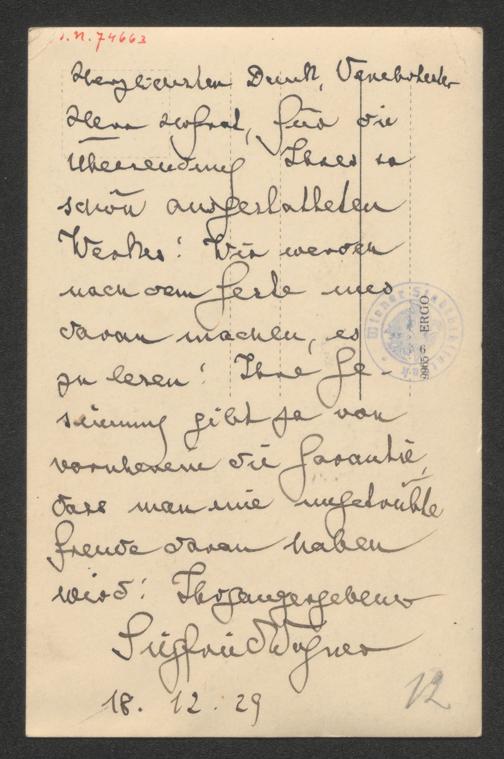 I.N. 74663
Herzlichsten Dank, Verehrtester
Herr Hofrat, für die
Übersendung Ihres so
schön ausgestatteten
Werkes! Wir werden
nach dem Feste uns
daran machen, es
zu lesen! Ihre Ge-
sinnung gibt ja von
vornherein die Garantie,
dass man nie ungetrübte
Freude daran haben
wird! Ihr ganz ergebener
Siegfried Wagner
18. 12. 29
12
Wiener Stadtbibliothek
9905 6 ERGO